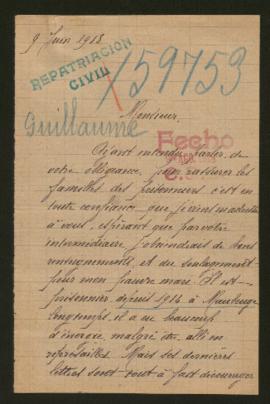 9 Juin 1918
REPATRIACION
CIVIL
159753
Guillaume
Monsieur,
Fecho
Ayant entendu parler de
votre obligeance, pour rassurer les
familles des prisonniers c'est en
toute confiance que je viens m'adresser
à vous, espérant que par votre
intermédiaire j'obtiendrais de bons
renseignements et du soulagement
pour mon pauvre mari. Il est
prisonnier depuis 1914 à Maubeuge
longtemps, il a eu beaucoup
d'encore, malgré être allé en
représailles. Mais ses dernières
lettres sont tout à fait décourager